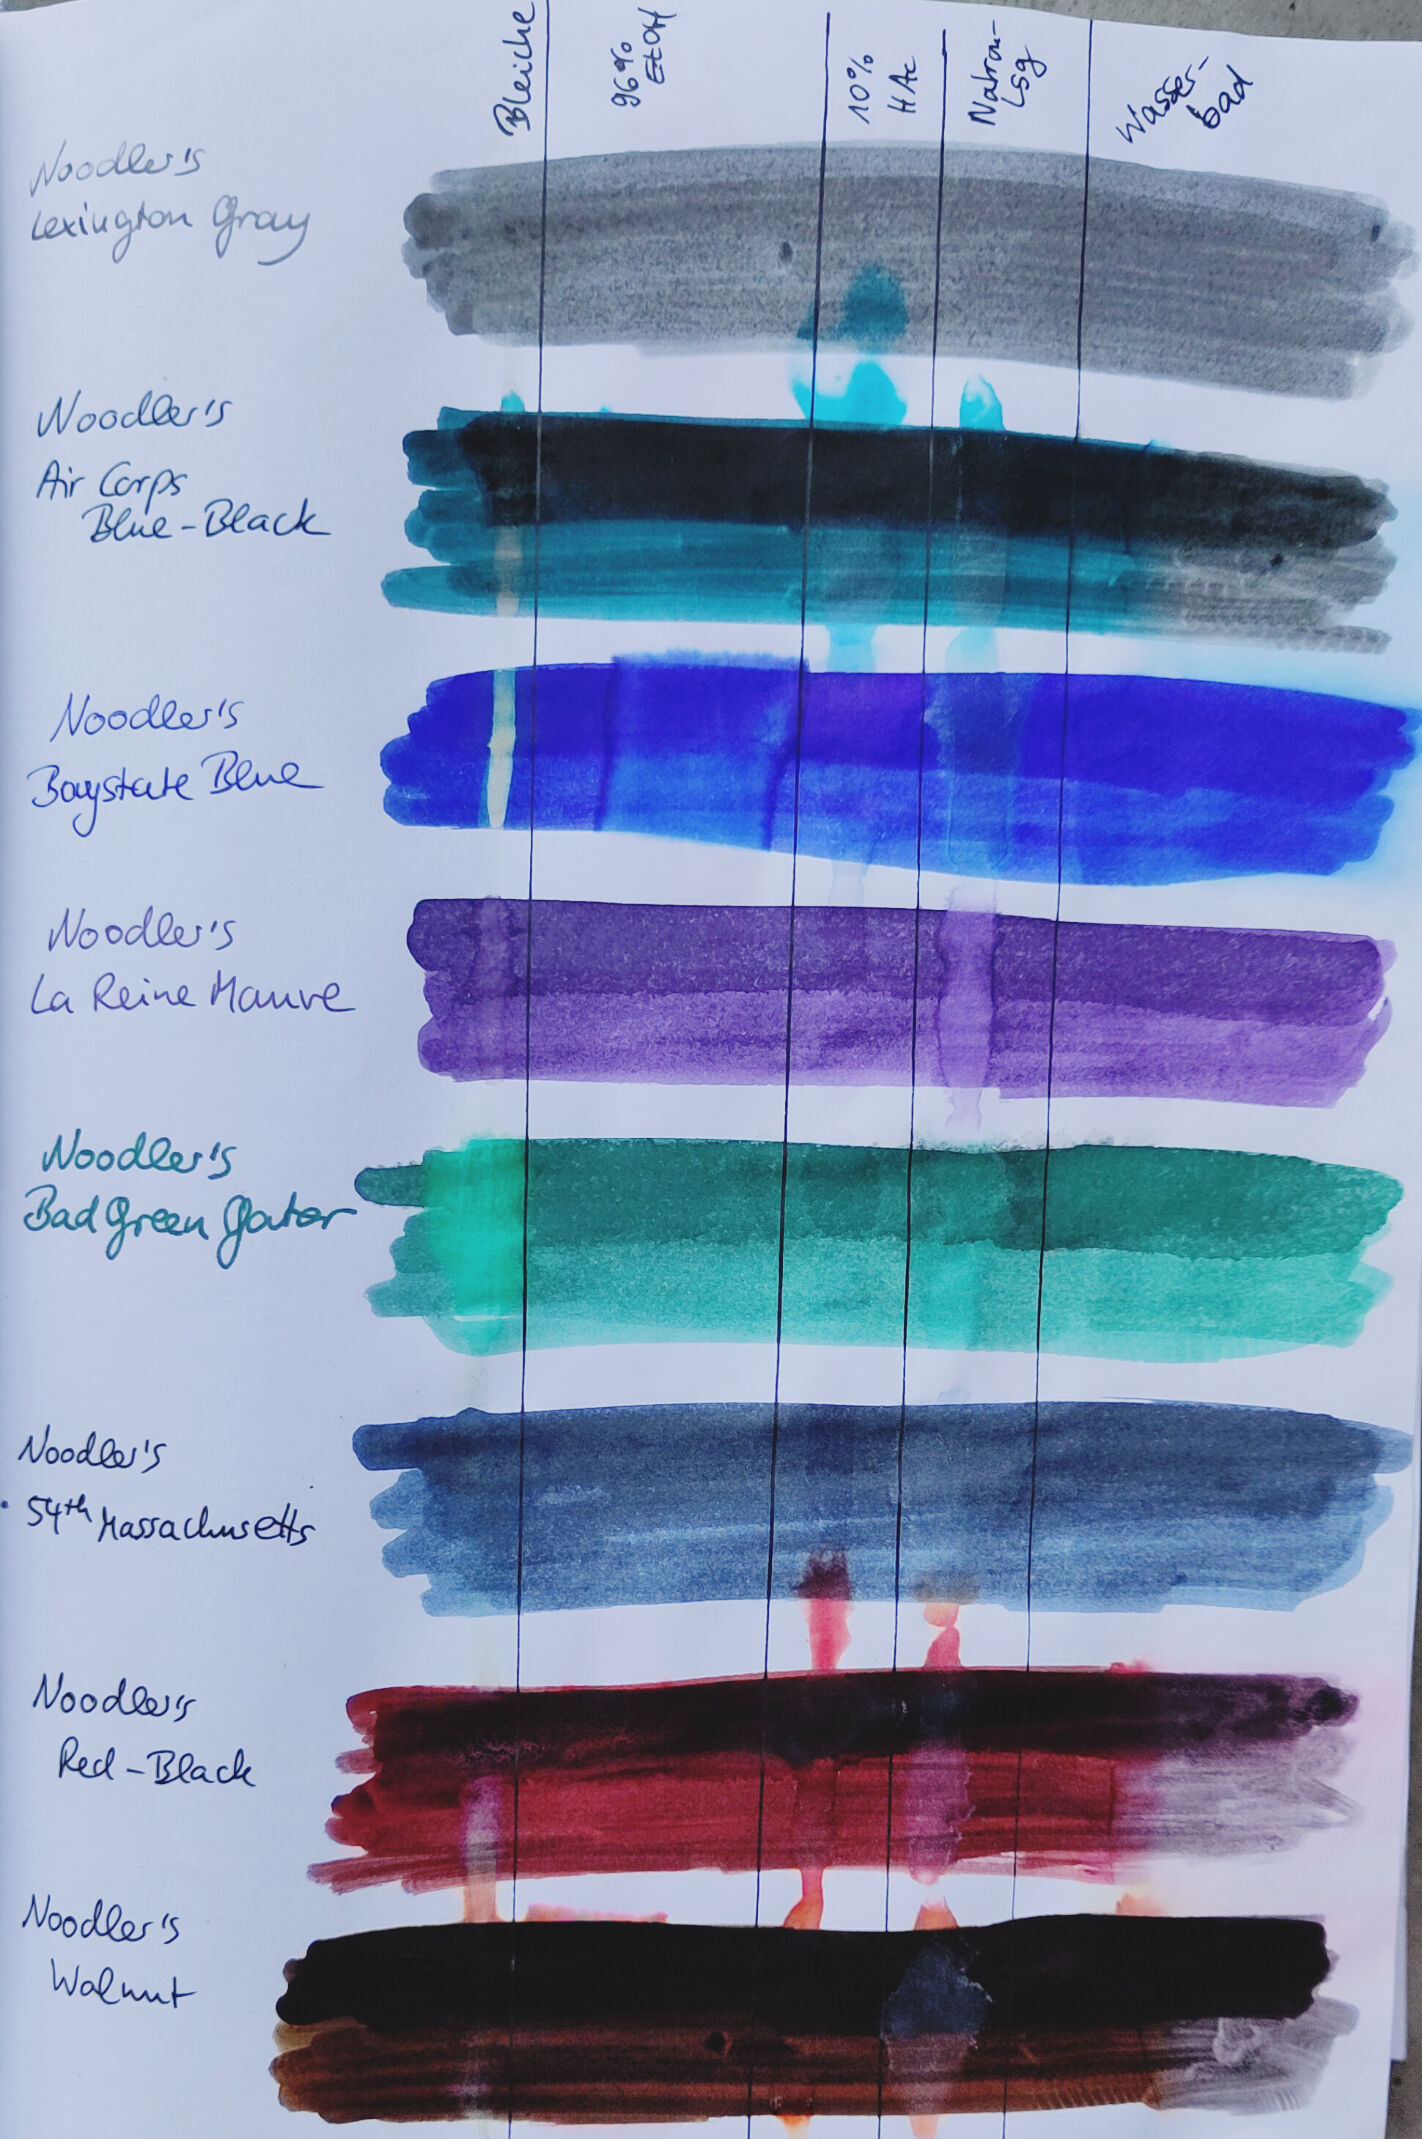 Bleiche
96%
EtOH
10%
HAc
Natron-
Lsg
Wasser-
bad
Noodler's
Lexington Gray
Noodler's
Air Corps
Blue-Black
Noodler's
Baystate Blue
Noodler's
La Reine Mauve
Noodler's
Bad Green Gator
Noodler's
54th Massachusetts
Noodler's
Red-Black
Noodler's
Walnut